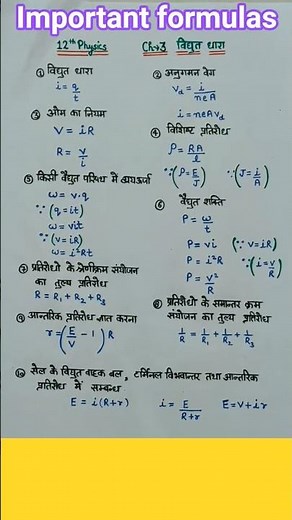 Important formulas
12th Physics Ch→3 विद्युत धारा
① विद्युत धारा
i = q/t
② अनुगमन वेग
v_d = i/neA
i = neAv_d
③ ओम का नियम
V = iR
R = V/i
④ विशिष्ट प्रतिरोध
ρ = RA/l
∵(ρ = E/J) ∵(J = i/A)
⑤ किसी वैद्युत परिपथ में व्ययऊर्जा
ω = v.q
∵ (q = it)
ω = vit
∵ (v = iR)
ω = i²Rt
⑥ वैद्युत शक्ति
P = ω/t
P = vi (∵ v = iR)
P = i²R
P = v²/R (∵ i = v/R)
⑦ प्रतिरोधों के श्रेणीक्रम संयोजन
का तुल्य प्रतिरोध
R = R₁ + R₂ + R₃
⑧ प्रतिरोधों के समान्तर क्रम
संयोजन का तुल्य प्रतिरोध
1/R = 1/R₁ + 1/R₂ + 1/R₃
⑨ आन्तरिक प्रतिरोध ज्ञात करना
r = (E/V - 1) R
⑩ सेल के विद्युत वाहक बल, टर्मिनल विभवान्तर तथा आन्तरिक
प्रतिरोध में सम्बन्ध
E = i(R+r) i = E/R+r E = V + ir